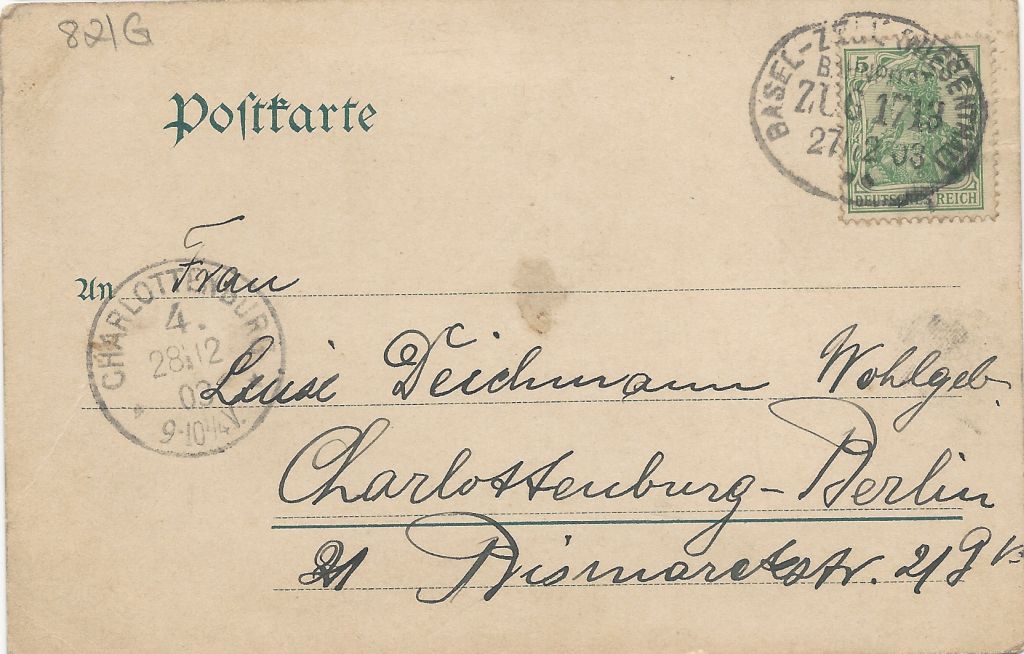 82/G
Postkarte
BASEL-ZELL (WIESENTHAL)
BAHNPOST
ZUG 1713
27 12 03
5
DEUTSCHES REICH
An Frau
CHARLOTTENBURG
4.
28.12
03
9-10¼V.
Luise Deichmann Wohlgeb.
Charlottenburg-Berlin
21 Bismarckstr. 21